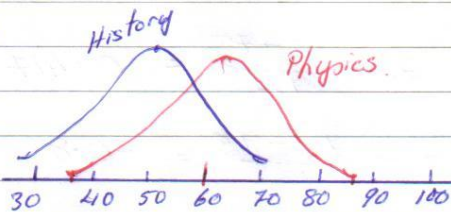 History
Physics.
30 40 50 60 70 80 90 100